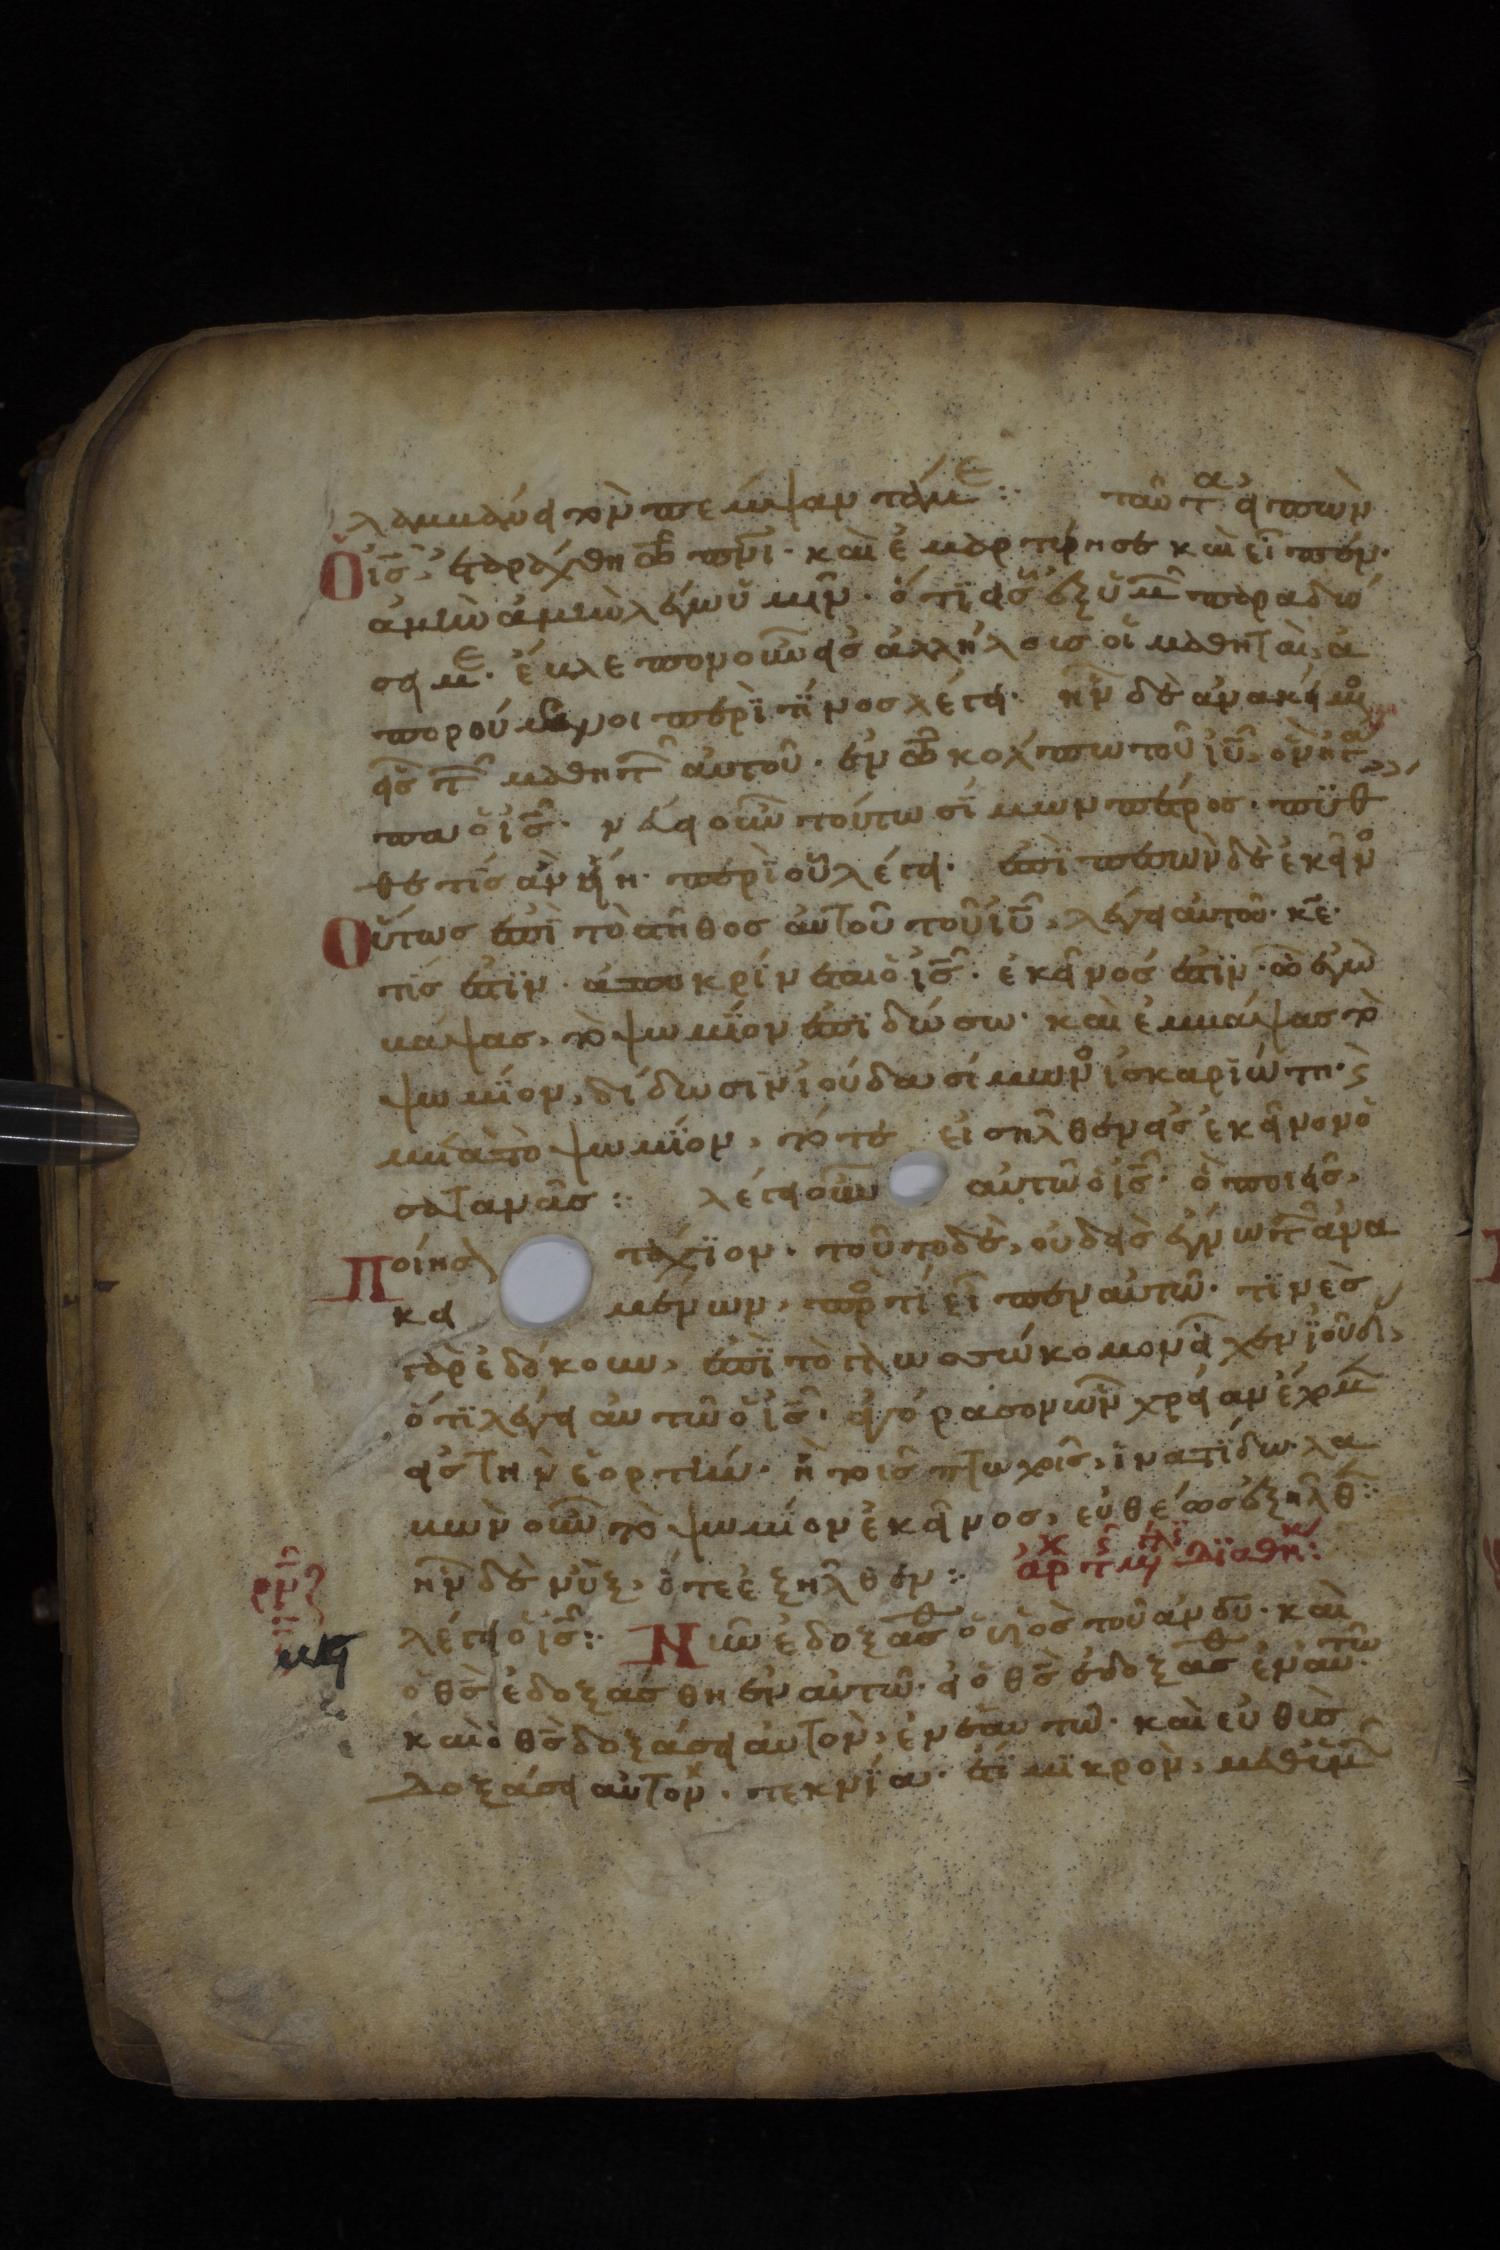 λαμβάνει τὸν πέμψαντά με: ταῦτα εἰπὼν
Ὁ ις, ἐταράχθη τῶ πνι· καὶ ἐμαρτύρησε καὶ εἶπεν·
ἀμὴν ἀμὴν λέγω ὑμῖν· ὅτι εἷς ἐξ ὑμ παραδώ
σει με· ἔβλεπον οὖν εἰς ἀλλήλους οἱ μαθηταὶ, ἀ
πορούμενοι περὶ τίνος λέγει· ἦν δὲ ἀνακείμ
εἷς τ μαθητ αὐτοῦ· ἐν τῶ κόλπω τοῦ ιυ, ὃν ἠγά
πα ὁ ις· νεύει οὖν τούτω σίμων πέτρος· πυθέ
θαι τίς ἂν εἴη περὶ οὗ λέγει· ἐπιπεσὼν δὲ ἐκεῖνο
Οὕτως ἐπὶ τὸ στῆθος αὐτοῦ τοῦ ιυ, λέγει αὐτῶ· κε·
τίς ἐστιν· ἀποκρίνεται ὁ ις· ἐκεῖνός ἐστιν· ὧ ἐγὼ
βάψας, τὸ ψωμίον ἐπιδώσω· καὶ ἐμβάψας τὸ
ψωμίον, δίδωσιν ἰούδα σίμωνο ἰσκαριώτη· ϗ
μετὰ τὸ ψωμίον, τότε εἰσῆλθεν εἰς ἐκεῖνον ὁ
σατανᾶς: λέγει οὖν αὐτῶ ὁ ις· ὃ ποιεῖς,
Ποίησ τάχιον· τοῦτο δὲ, οὐδεὶς ἔγνω τ ἀνα
κει μένων, προ τί εἶπεν αὐτῶ· τινὲς
γὰρ ἐδόκουν, ἐπὶ τὸ γλωσσόκομον εἶχεν ἰούδ,
ὅτι λέγει αὐτῶ ὁ ις· ἀγόρασον ὧν χρείαν ἔχομ
εἰς τὴν ἑορτήν· ἢ τοῖς πτωχοῖς, ἵνα τι δῶ· λα
βὼν οὖν τὸ ψωμίον ἐκεῖνος, εὐθέως ἐξῆλθ:
ἦν δὲ νὺξ, ὅτε ἐξῆλθεν:
λέγει ὁ ις: Νῦν ἐδοξάσθ ὁ υἱὸς τοῦ ανου· καὶ
ὁ θς ἐδοξάσθη ἐν αὐτῶ· εἰ ὁ θς ἐδοξάσθ ἐν αὐτῶ
καὶ ὁ θς δοξάσει αὐτὸν, ἐν ἑαυτῶ· καὶ εὐθὺς
Δοξάσει αὐτόν· τεκνία· ἔτι μικρὸν, μεθ' ὑμ